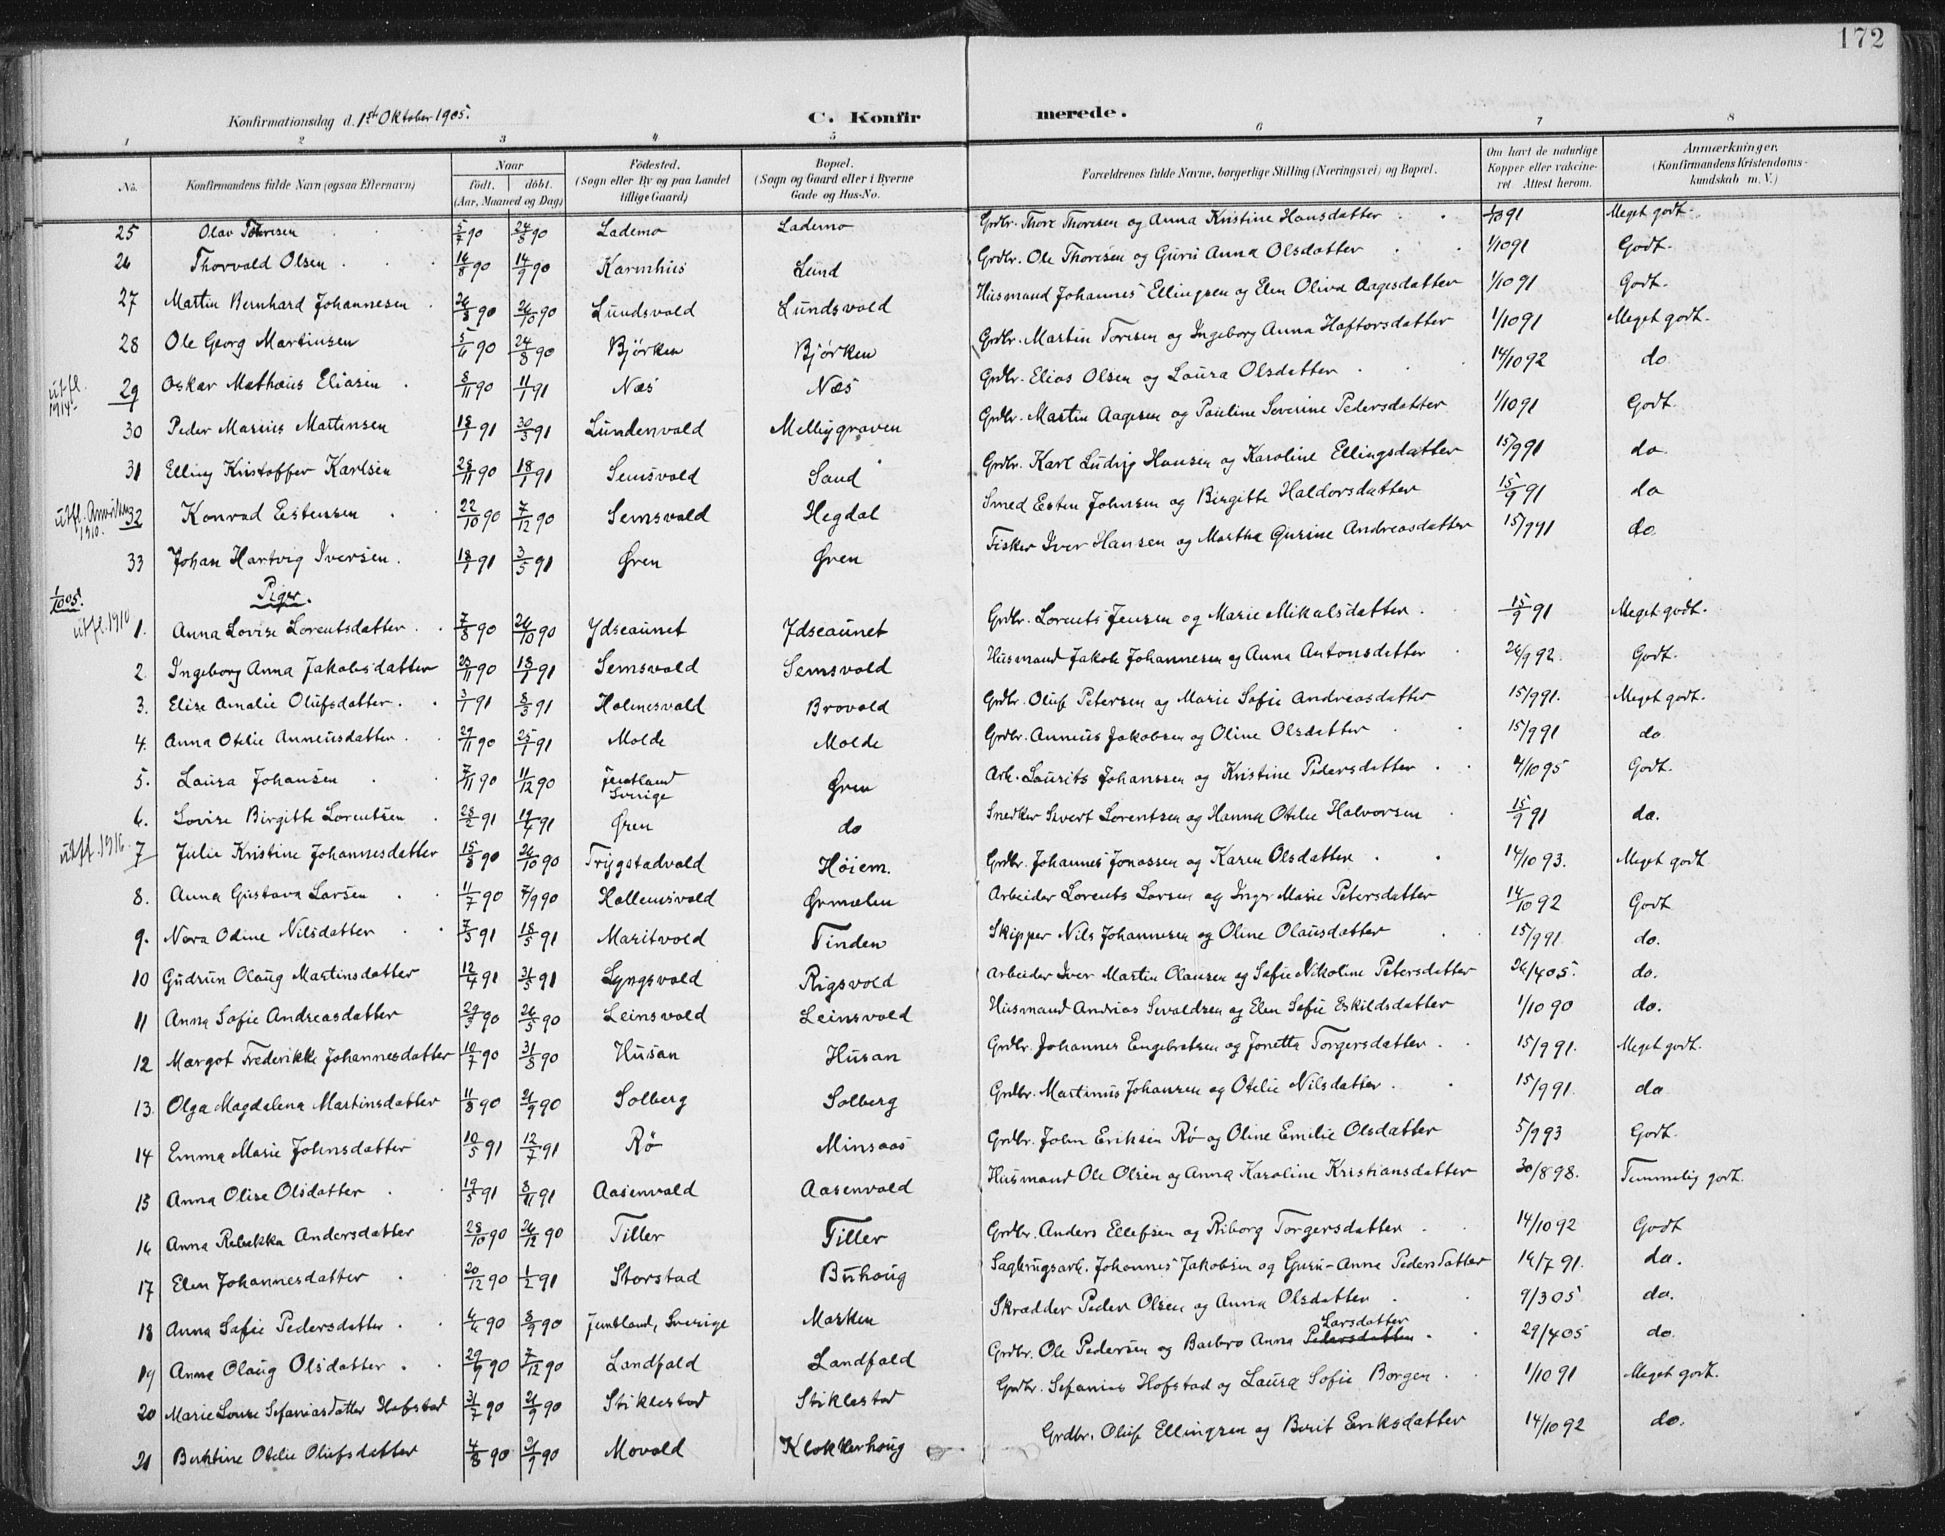 172
Konfirmationsdag d. 1st Oktober 1905.
C. Konfirmerede.
1 2 3 4 5 6 7 8
No. | Konfirmandens fulde Navn (ogsaa Efternavn) | Naar født. døbt. (Aar, Maaned og Dag) | Fødested. (Sogn eller By og paa Landet tillige Gaard) | Bopæl. (Sogn og Gaard eller i Byerne Gade og Hus-No.) | Forældrenes fulde Navne, borgerlige Stilling (Næringsvei) og Bopæl. | Om havt de naturlige Kopper eller vakcineret Attest herom. | Anmærkninger. (Konfirmandens Kristendomskundskab m. V.)
25 Olav Thoresen 5/7 90 24/8 90 Lademo Lademo Grdbr. Thore Thoresen og Anna Kristine Hansdatter 1/10 91 Meget godt.
26 Thorvald Olsen 16/8 90 14/9 90 Karmhus Lund Grdbr. Ole Thoresen og Guru Anna Olsdatter 1/10 91 Godt.
27 Martin Bernhard Johannesen 26/8 90 26/10 90 Lundsvald Lundsvold Husmand Johannes Ellingsen og Elen Oliva Aagesdatter 1/10 91 Godt.
28 Ole Georg Martinsen 5/6 90 24/8 90 Bjørken Bjørken Grdbr. Martin Toresen og Ingeborg Anna Haftorsdatter 1/10 91 Meget godt.
utfl. 1914. 29 Oskar Mathæus Eliasen 8/11 90 11/1 91 Næs Næs Grdbr. Elias Olsen og Laura Olsdatter 14/10 92 do
30 Peder Marius Martinsen 18/1 91 30/3 91 Lundenvald Mellbygraven Grdbr. Martin Aagesen og Pauline Severine Pedersdatter 1/10 91 Godt.
31 Elling Kristoffer Karlsen 28/11 90 18/1 91 Semsvald Sand Grdbr. Karl Ludvig Hansen og Karoline Ellingsdatter 15/9 91 do
utfl. Amerika 1910. 32 Konrad Estensen 22/10 90 7/12 90 Semsvald Hegdal Smed Esten Johnsen og Birgitte Haldorsdatter 15/9 91 do
33 Johan Hartvig Iversen. 18/1 91 3/5 91 Øren Øren Fisker Iver Hansen og Martha Gurine Andreasdatter 15/9 91 do
1/10 05. Piger.
utfl. 1910 1. Anna Lovise Lorentsdatter 7/8 90 26/10 90 Ydseaunet Ydseaunet Grdbr. Lorents Jensen og Marie Mikalsdatter 15/9 91 Meget godt.
2. Ingeborg Anna Jakobsdatter 90 91 Semsvald Semsvold Husmand Jakob Johannesen og Anna Antonsdatter 26/9 92. Godt.
3. Elise Amalie Olufsdatter 3/1 91 8/3 91 Holmesvald Brovold Grdbr. Oluf Petersen og Marie Sofie Andreasdatter 15/9 91. Meget godt.
4. Anna Otelie Anneusdatter 29/11 90 25/1 91 Molde Molde Grdbr. Anneus Jakobsen og Oline Olsdatter 15/9 91 do
5. Laura Johansen 7/11 90 11/12 90 Jemtland Sverige Øren Arb. Laurits Johanssen og Kristine Pedersdatter 4/10 95 Godt.
6. Lovise Birgitte Lorentsen 28/2 91 19/4 91 Øren do Snedker Sivert Lorentsen og Hanna Otelie Halvorsen 15/9 91 do.
utfl. 1916. 7 Julie Kristine Johannesdatter 15/8 90 26/10 90 Trygstadvald Høiem. Grdbr. Johannes Jonassen og Karen Olsdatter 14/10 93. Meget godt
8. Anna Gustava Larsen 11/7 90 7/9 90 Hallemsvald Ørmelen Arbeider Lorents Larsen og Inger Marie Petersdatter 14/10 92 Godt
9. Nora Odine Nilsdatter 7/3 91 18/5 91 Maritvold Tinden Skipper Nils Johannesen og Oline Olausdatter 15/9 91. do.
10 Gudrun Olaug Martinsdatter 12/4 91 31/5 91 Lyngsvold Rigsvold Arbeider Iver Martin Olausen og Sofie Nikoline Petersdatter 26/4 05. do.
11 Anna Sofie Andreasdatter 29/3 90 26/5 90 Leinsvold Leinsvold Husmand Andrias Sevaldsen og Elen Sofie Eskildsdatter 1/10 90 do.
12 Margot Frederikke Johannesdatter 10/7 90 31/8 90 Husan Husan Grdbr. Johannes Engebretsen og Jonetta Torgersdatter 15/9 91. Meget godt.
13. Olga Magdalena Martinsdatter 11/8 90 21/9 90 Solberg Solberg Grdbr. Martinus Johansen og Otelie Nilsdatter 15/9 91. do
14 Emma Marie Johnsdatter 10/5 91 12/7 91 Rø Minsaas Grdbr. John Eriksen Rø og Oline Emilie Olsdatter 5/9 93 Godt.
15 Anna Olise Olsdatter 19/5 91 8/11 91 Aasenvald Aasenvold Husmand Ole Olsen og Anna Karoline Kristiansdatter 30/8 98. Temmelig godt.
16 Anna Rebekka Andersdatter 28/10 90 26/12 90 Tiller Tiller Grdbr. Anders Ellefsen og Riborg Torgersdatter 14/10 92 Godt
17 Elen Johannesdatter 20/12 90 1/2 91 Storstad Buhoug Sagbrugsarb. Johannes Jakobsen og Guru-Anna Pedersdatter 14/7 91. do.
18 Anna Sofie Pedersdatter 6/6 90 8/9 90 Jemtland, Sverige Marken Skrædder Peder Olsen og Anna Olsdatter 9/3 05 do.
19 Anna Olaug Olsdatter 29/9 90 7/12 90 Landfald Landfald Grdbr. Ole Pedersen og Barbro Anna Pedersdatter Larsdatter 29/4 05 do
20 Marie Louise Sefaniasdatter Hofstad 31/7 90 21/9 90 Stiklestad Stiklestad Grdbr. Sefanias Hofstad og Laura Sofie Borgen 1/10 91 Meget godt.
21 Berntine Otelie Olufsdatter 4/8 90 21/9 90 Movald Klokkerhoug Grdbr. Oluf Ellingsen og Berit Eriksdatter 14/10 92 do.